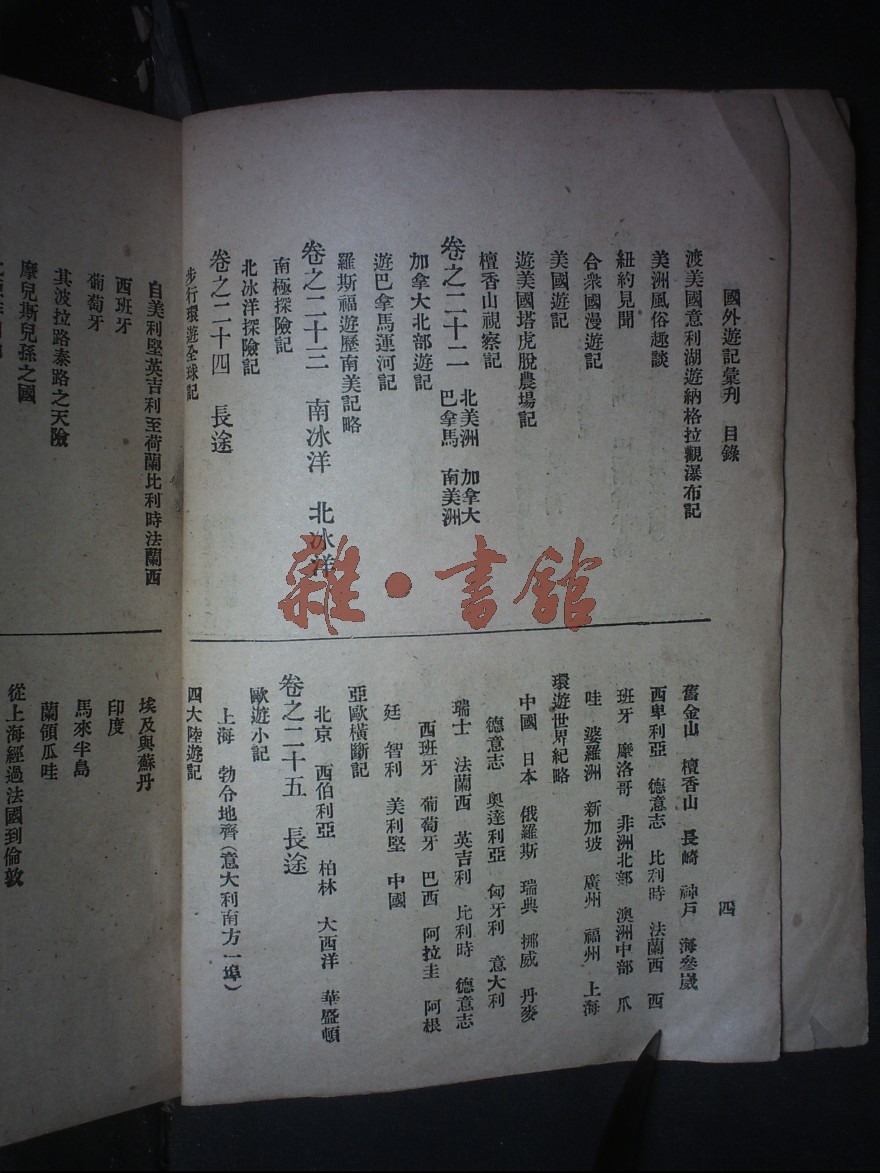 國外遊記彙刊 目錄
四
渡美國意利湖遊納格拉觀瀑布記
美洲風俗趣談
紐約見聞
合衆國漫遊記
美國遊記
遊美國塔虎脫農場記
檀香山視察記
卷之二十二 北美洲 加拿大 巴拿馬 南美洲
加拿大北部遊記
遊巴拿馬運河記
羅斯福遊歷南美記略
卷之二十三 南冰洋 北冰洋
南極探險記
北冰洋探險記
卷之二十四 長途
步行環遊全球記
舊金山 檀香山 長崎 神戶 海參崴
西卑利亞 德意志 比利時 法蘭西 西
班牙 摩洛哥 非洲北部 澳洲中部 爪
哇 婆羅洲 新加坡 廣州 福州 上海
環遊世界紀略
中國 日本 俄羅斯 瑞典 挪威 丹麥
德意志 奧達利亞 匈牙利 意大利
瑞士 法蘭西 英吉利 比利時 德意志
西班牙 葡萄牙 巴西 阿拉圭 阿根
廷 智利 美利堅 中國
亞歐橫斷記
北京 西伯利亞 柏林 大西洋 華盛頓
卷之二十五 長途
歐遊小記
上海 勃令地齊(意大利南方一埠)
四大陸遊記
自美利堅英吉利至荷蘭比利時法蘭西
西班牙
葡萄牙
其波拉路泰路之天險
摩兒斯兒孫之國
埃及與蘇丹
印度
馬來半島
蘭領瓜哇
從上海經過法國到倫敦
雜·書館